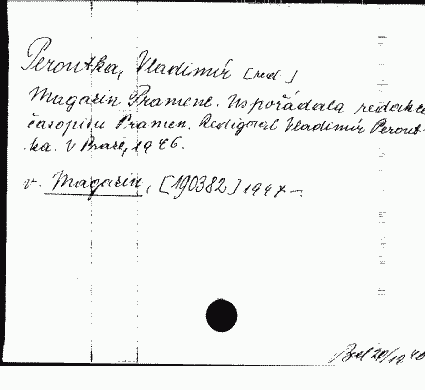 Peroutka, Vladimír [red.]
Magazin Pramene. Uspořádala redakce
časopisu Pramen. Redigoval Vladimír Perout-
ka. V Praze, 1946.
v. Magazin, [190382] 1947-.
20/12 48